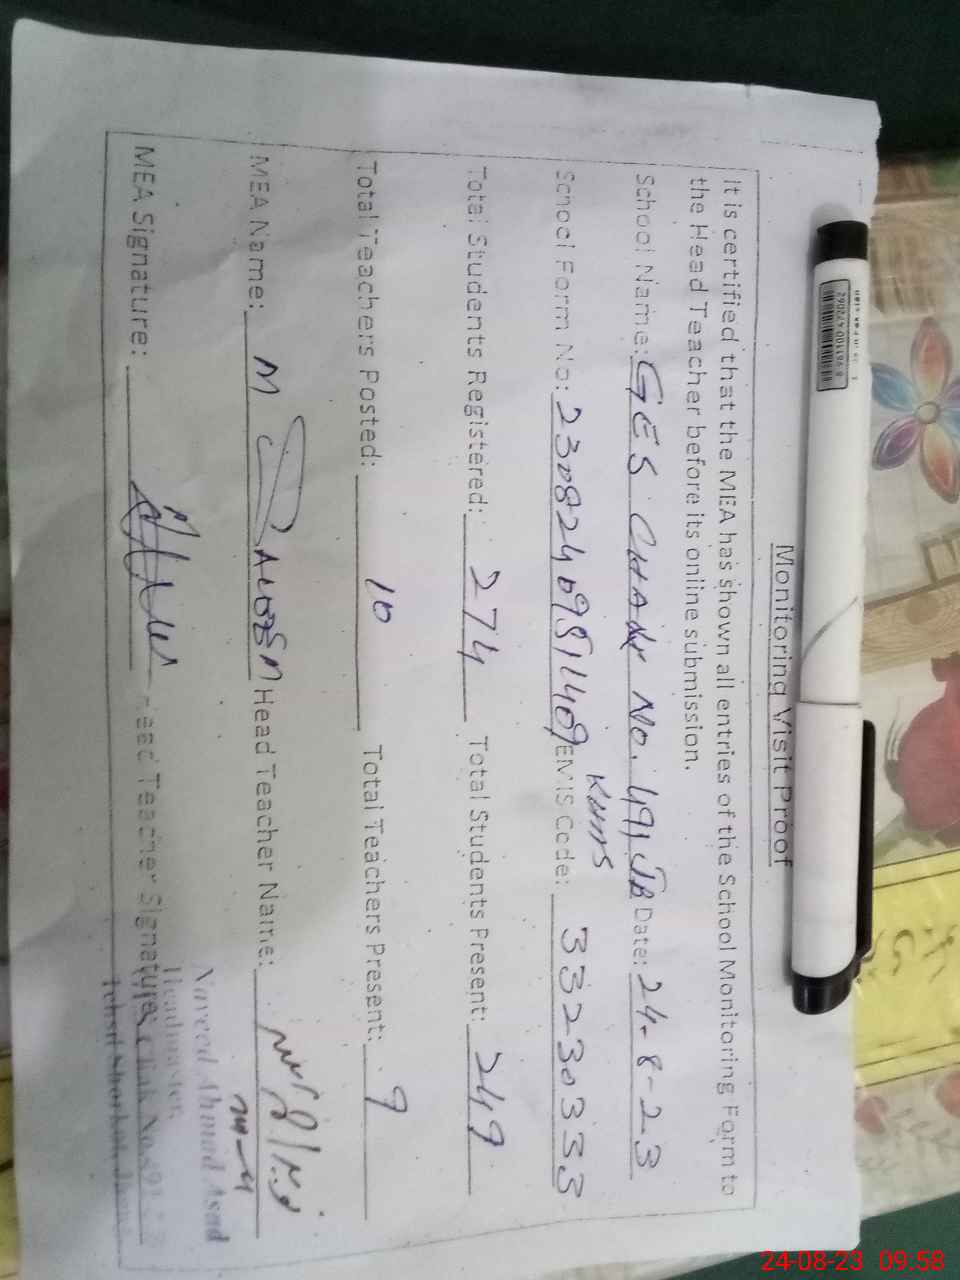 Monitoring Visit Proof
It is certified that the MEA has shown all entries of the School Monitoring Form to
the Head Teacher before its online submission.
School Name: GES CHAK NO. 491 JB Date: 24-8-23
School Form No: EMIS Code: 33230333
Total Students Registered: 274 Total Students Present: 249
Total Teachers Posted: 10 Total Teachers Present: 9
MEA Name: M SALEEM Head Teacher Name:
MEA Signature: Head Teacher Signature:
Naveed Ahmad Asad
Headmaster,
24-08-23 09.58